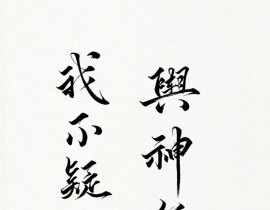 與神
我不疑